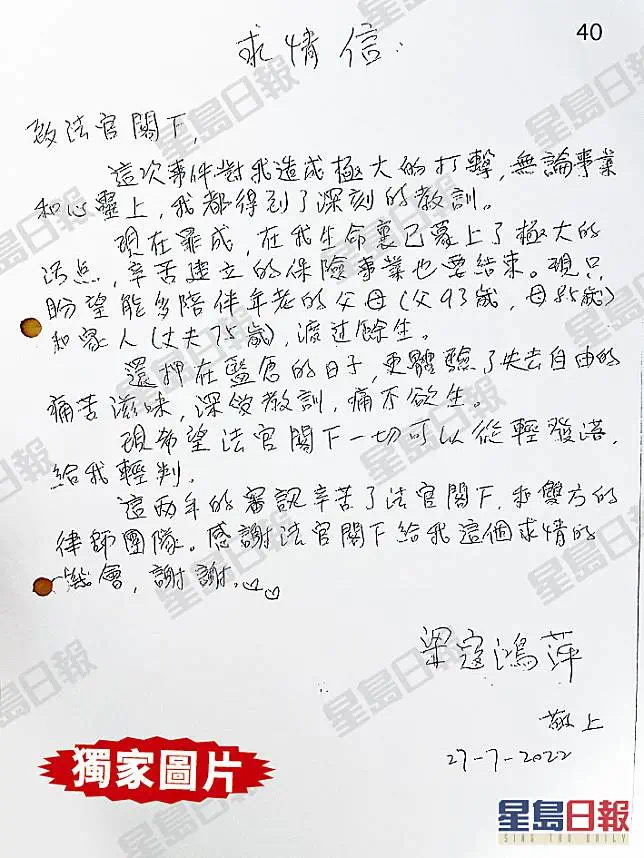 40
求情信：
致法官閣下，
這次事件對我造成極大的打擊，無論事業
和心靈上，我都得到了深刻的教訓。
現在罪成，在我生命裏已蒙上了極大的
污点，辛苦建立的保險事業也要結束。現只
盼望能多陪伴年老的父母(父93歲，母85歲)
和家人(丈夫75歲)，渡过餘生。
還押在監倉的日子，更體驗了失去自由的
痛苦滋味，深受教訓，痛不欲生。
現希望法官閣下一切可以從輕發落，
給我輕判。
這兩年的審訊辛苦了法官閣下，和雙方的
律師團隊。感謝法官閣下給我這個求情的
機會，謝謝。
梁寇鴻萍
敬上
27-7-2022
獨家圖片
星島日報
SING TAO DAILY